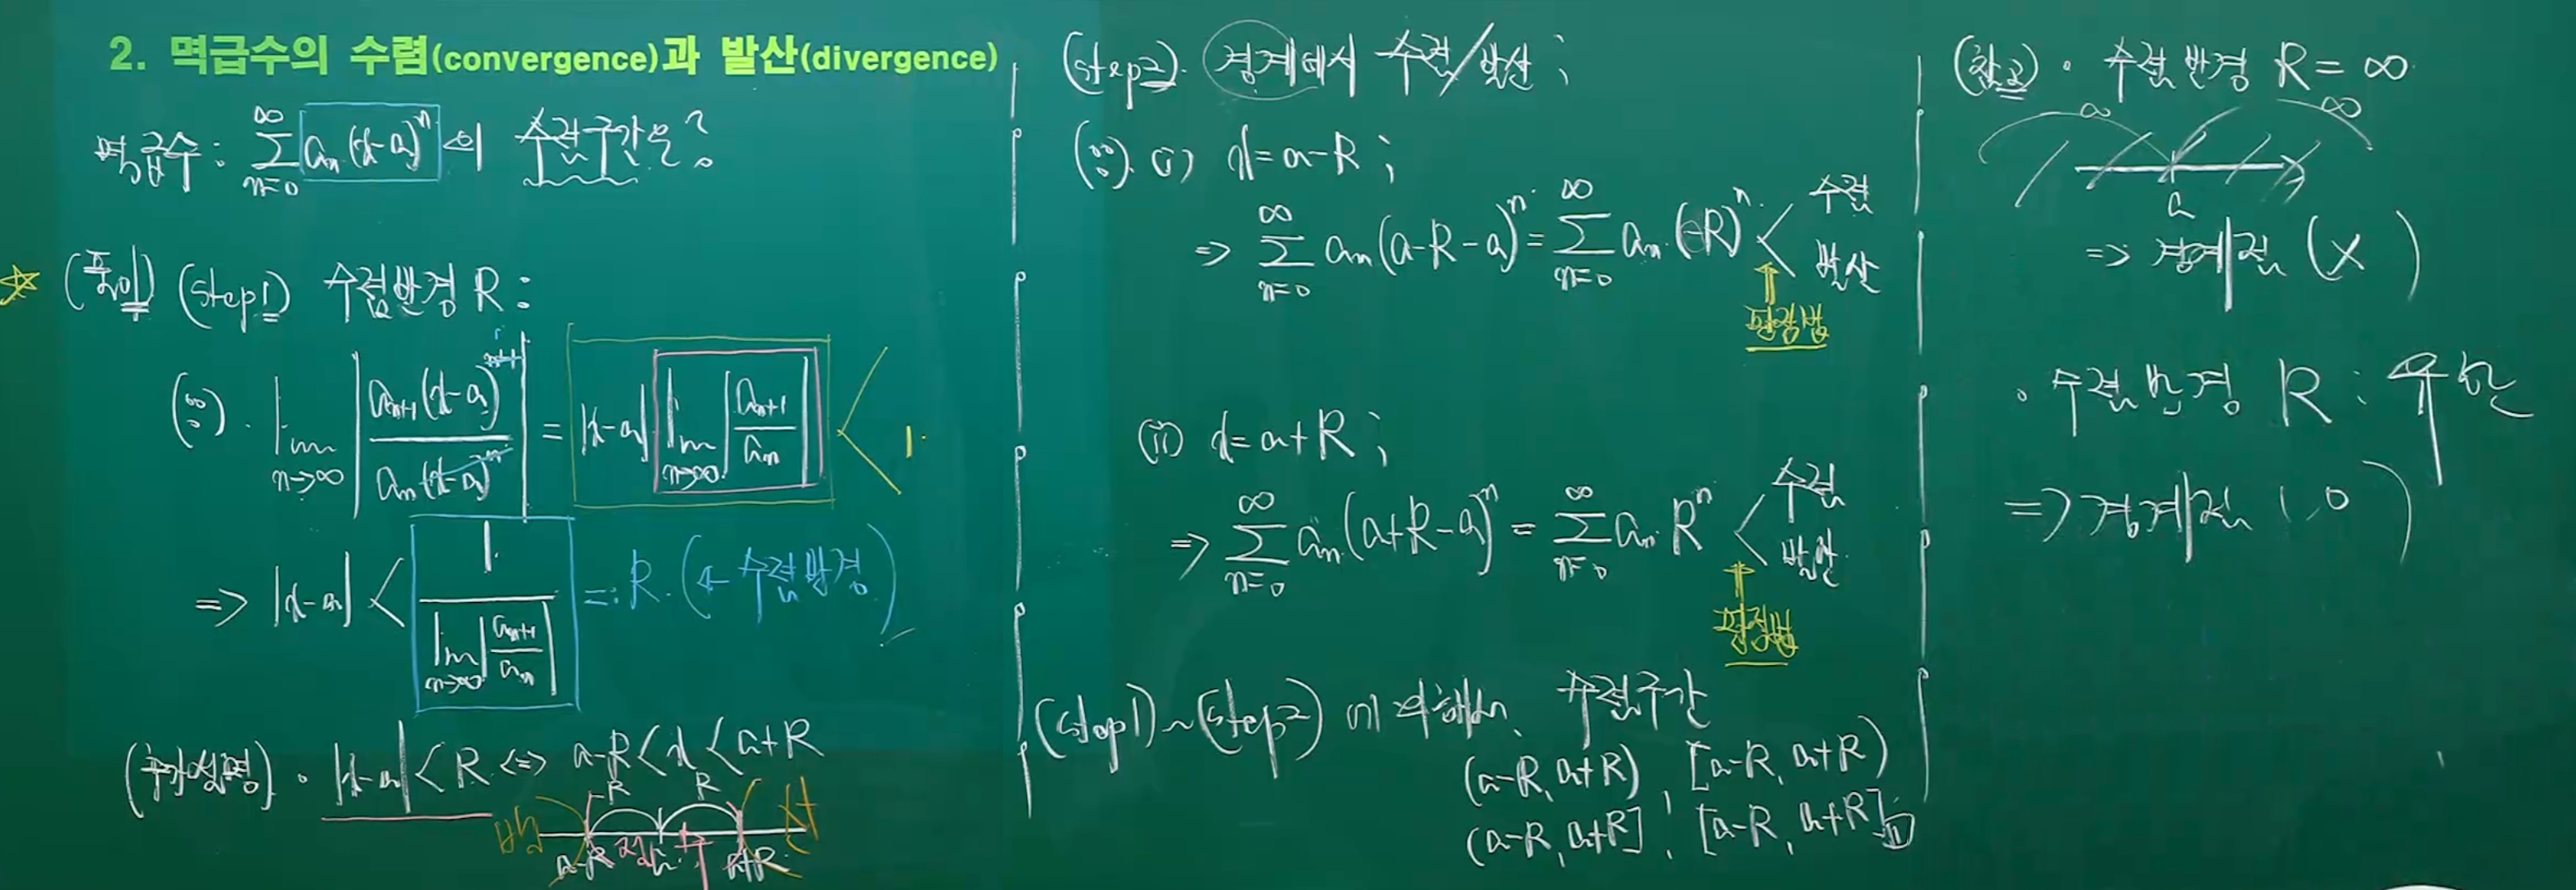 2. 멱급수의 수렴(convergence)과 발산(divergence)
멱급수 : ∑_{n=0}^{∞} aₙ(x-a)ⁿ 의 수렴구간은?
☆ (풀이) (step1) 수렴반경 R :
(∵) · lim_{n→∞} |aₙ₊₁(x-a)ⁿ⁺¹ / aₙ(x-a)ⁿ| = |x-a| lim_{n→∞} |aₙ₊₁/aₙ| < 1.
=> |x-a| < 1 / lim_{n→∞} |aₙ₊₁/aₙ| =: R. (← 수렴반경)
(추가설명) · |x-a| < R <=> a-R < x < a+R
R R
발 수렴 산
a-R a a+R
(step2). 경계에서 수렴/발산 ;
(∵). (i) x = a-R ;
=> ∑_{n=0}^{∞} aₙ(a-R-a)ⁿ = ∑_{n=0}^{∞} aₙ.(-R)ⁿ. < 수렴
발산
↑
판정법
(ii) x = a+R ;
=> ∑_{n=0}^{∞} aₙ.(a+R-a)ⁿ = ∑_{n=0}^{∞} aₙ.Rⁿ < 수렴
발산.
↑
판정법
(step1)~(step2) 에 의해서, 수렴구간
(a-R, a+R), [a-R, a+R)
(a-R, a+R], [a-R, a+R]
(참고) · 수렴반경 R = ∞
∞ ∞
a
=> 경계점 (X)
· 수렴반경 R : 유한
=> 경계점 (O)